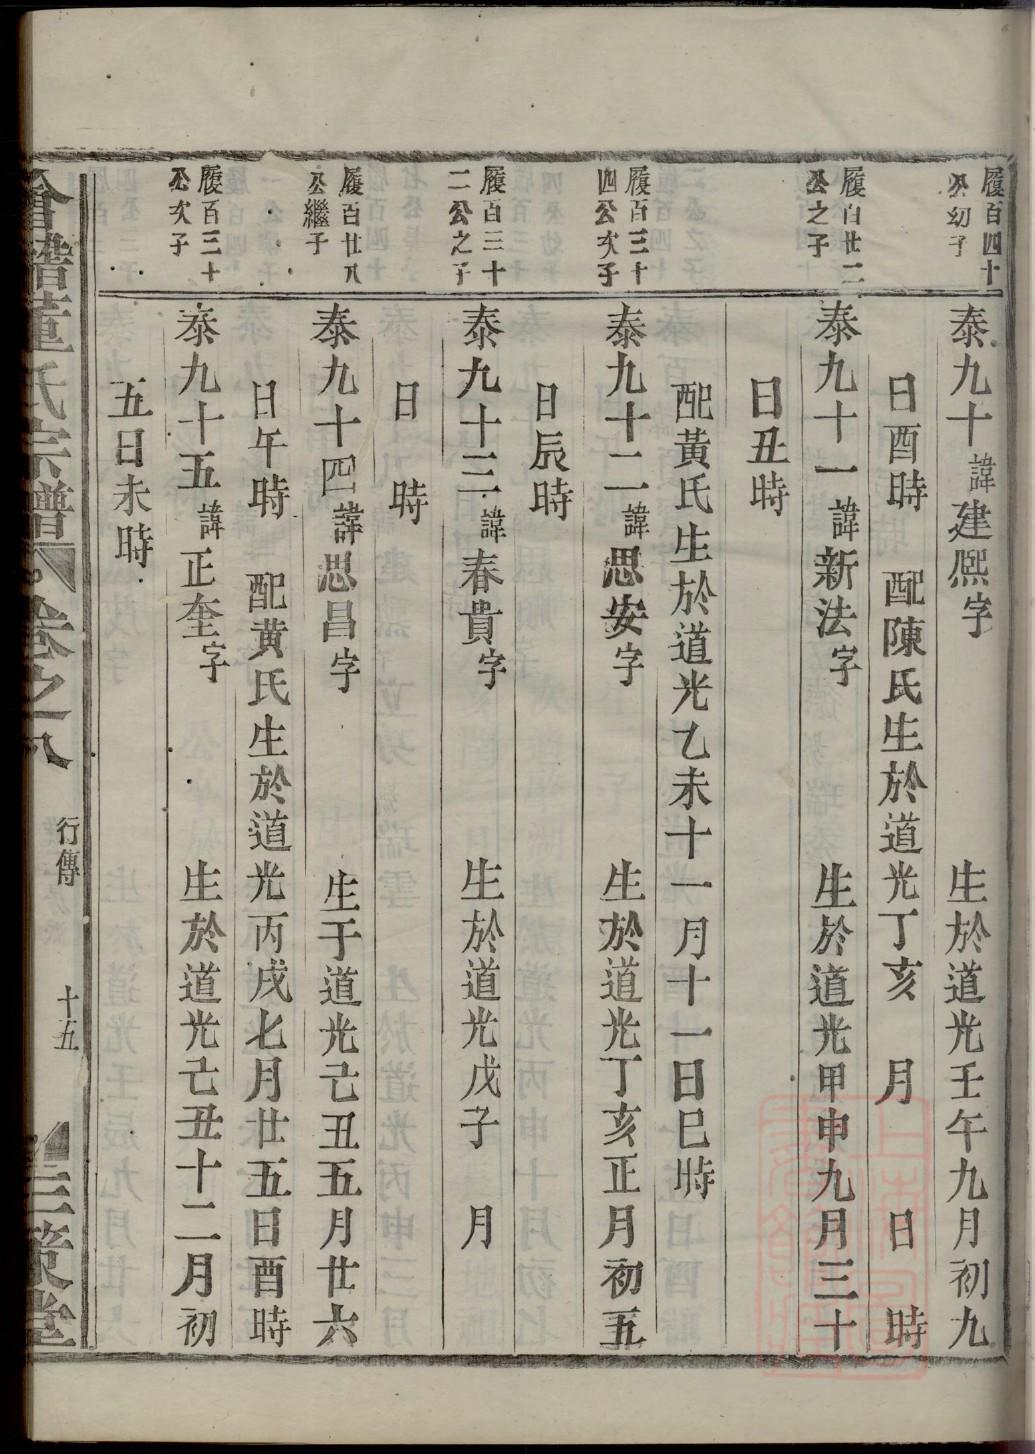 履百四十
公幼子
泰九十諱建熈字 生於道光壬午九月初九
日酉時 配陳氏生於道光丁亥 月 日 時
履百廿二
公之子
泰九十一諱新法字 生於道光甲申九月三十
日丑時
配黃氏生於道光乙未十一月十一日巳時
履百三十
四公次子
泰九十二諱思安字 生於道光丁亥正月初五
日辰時
履百三十
二公之子
泰九十三諱春貴字 生於道光戊子 月
日 時
履百廿八
公繼子
泰九十四諱思昌字 生于道光己丑五月廿六
日午時 配黄氏生於道光丙戌七月廿五日酉時
履百三十
公次子
泰九十五諱正奎字 生於道光己丑十二月初
五日未時
董氏宗譜 卷之八 行傳 十五 三策堂